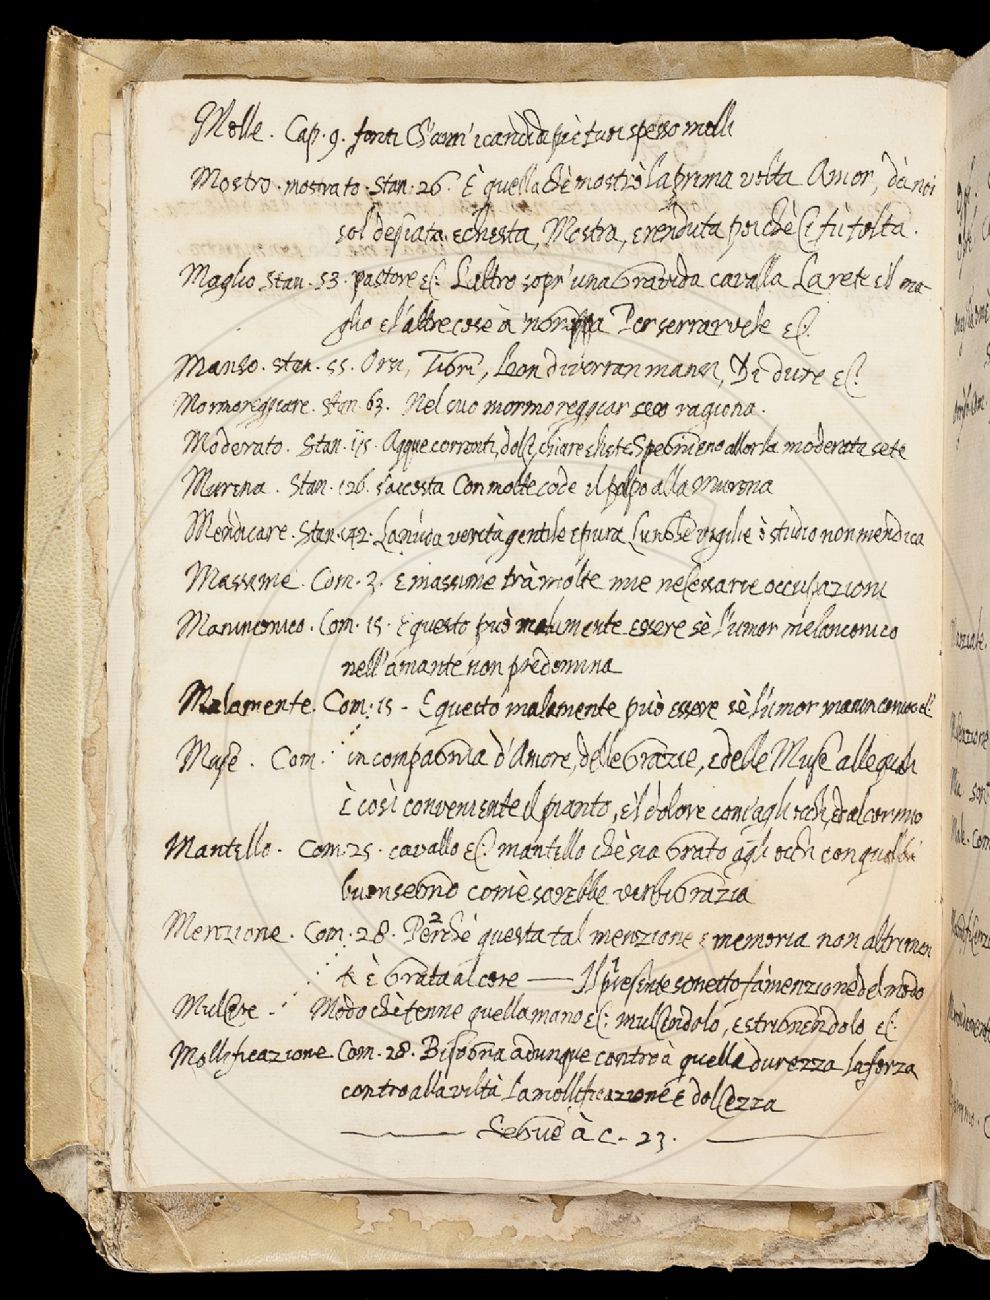 Molle. Cap. 9. fonti Ch'avri i candidi piè fuor spesso molli
Mostro. mostrato. Stan. 26. È quella chè mostrò la prima volta Amor, dà noi
sol desiata e chiesta, Mostra, e renduta poichè ci fu tolta.
Maglio Stan. 53. pastore &c. L'altro sopr' una gravida cavalla La rete e il ma-
glio e l'altre cose à Per serrarvele &c.
Manso. stan. 55. Orsi, Tibri, Leon diverran mansi, Di dure &c.
Mormoreggiare. Stan. 63. Nel suo mormoreggiar seco ragiona.
Moderato. Stan. 115. Acque correnti, dolci, chiare e liete Spegnieno allor la moderata sete
Murena. Stan. 126. s'accosta Con molte code il polpo alla Murena
Mendicare. Stan. 142. La nuda verità gentile e pura Lunghe vigilie ò studio non mendica
Massime. Com. 2. e massime trà molte mie necessarie occupazioni
Maninconico. Com. 15. E questo può malamente essere sè l'umor melanconico
nell'amante non predomina
Malamente. Com. 15 - E questo malamente può essere sè l'umor maninconico &c.
Muse. Com. in compagnia d'Amore, delle Grazie, e delle Muse alle quali
È così conveniente il pianto, e'l dolore com'agli occhi, et al cor mio
Mantello. Com. 25. cavallo &c. mantello chè sia grato agli occhi con qualche
buon segno come sarebbe verbigrazia
Menzione. Com. 28. Perchè questa tal menzione e memoria non altrimen
ti è grata al core — Il presente sonetto fà menzione del modo
Mulcere - Modo chè tenne quella mano &c. mulcendolo, e strignendolo &c.
Mollificazione Com. 28. Bisogna adunque contro à quella durezza la forza
contro alla viltà La mollificazione e dolcezza
Segue à C. 23.